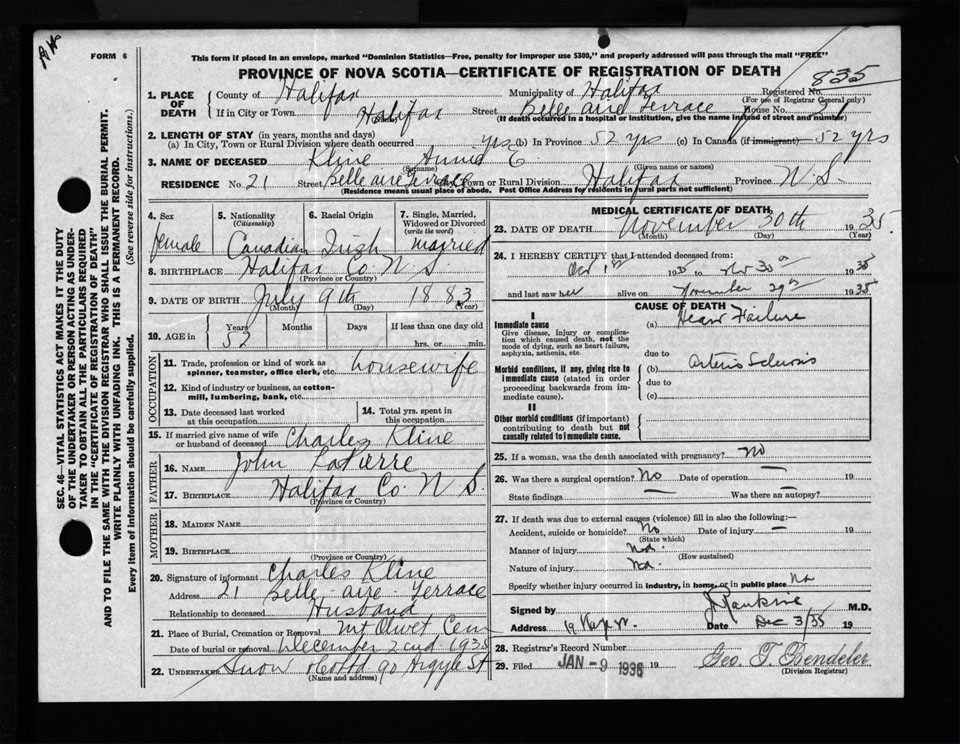 AH
FORM 6
This form if placed in an envelope, marked "Dominion Statistics—Free, penalty for improper use $300," and properly addressed will pass through the mail "FREE"
PROVINCE OF NOVA SCOTIA—CERTIFICATE OF REGISTRATION OF DEATH
835
1. PLACE OF DEATH
County of Halifax Municipality of Halifax Registered No.
(For use of Registrar General only)
If in City or Town Halifax Street Belle aire Terrace House No. 21
(If death occurred in a hospital or institution, give the name instead of street and number)
2. LENGTH OF STAY (in years, months and days)
(a) In City, Town or Rural Division where death occurred yrs (b) In Province 52 yrs (c) In Canada (if immigrant) 52 yrs
3. NAME OF DECEASED Kline Annie E.
(Surname) (Given name or names)
RESIDENCE No. 21 Street Belle aire Terrace City, Town or Rural Division Halifax Province N.S.
(Residence means usual place of abode. Post Office Address for residents in rural parts not sufficient)
4. Sex
female
5. Nationality
(Citizenship)
Canadian
6. Racial Origin
Irish
7. Single, Married, Widowed or Divorced
(write the word)
married
8. BIRTHPLACE Halifax Co. N.S.
(Province or Country)
9. DATE OF BIRTH July 9th 1883
(Month) (Day) (Year)
10. AGE in Years Months Days If less than one day old
52 hrs. or min.
OCCUPATION
11. Trade, profession or kind of work as spinner, teamster, office clerk, etc. housewife
12. Kind of industry or business, as cotton-mill, lumbering, bank, etc.
13. Date deceased last worked at this occupation
14. Total yrs. spent in this occupation
15. If married give name of wife or husband of deceased Charles Kline
FATHER
16. NAME John LaPierre
17. BIRTHPLACE Halifax Co. N.S.
(Province or Country)
MOTHER
18. MAIDEN NAME
19. BIRTHPLACE
(Province or Country)
20. Signature of informant Charles Kline
Address 21 Belle aire Terrace
Relationship to deceased Husband
21. Place of Burial, Cremation or Removal Mt Olivet Cem
Date of burial or removal December 2nd 1935
22. UNDERTAKER Snow 90 Argyle St
(Name and address)
MEDICAL CERTIFICATE OF DEATH
23. DATE OF DEATH November 30th 1935
(Month) (Day) (Year)
24. I HEREBY CERTIFY that I attended deceased from:
1st 1935 to Nov 30th 1935
and last saw her alive on November 29th 1935
CAUSE OF DEATH
I
Immediate cause
Give disease, injury or complication which caused death, not the mode of dying, such as heart failure, asphyxia, asthenia, etc.
(a) Heart Failure
due to
Morbid conditions, if any, giving rise to immediate cause (stated in order proceeding backwards from immediate cause).
(b) Arterio Sclerosis
due to
(c)
II
Other morbid conditions (if important) contributing to death but not causally related to immediate cause.
25. If a woman, was the death associated with pregnancy? No
26. Was there a surgical operation? No Date of operation — 19
State findings — Was there an autopsy? —
27. If death was due to external causes (violence) fill in also the following:—
Accident, suicide or homicide? No Date of injury — 19
(State which)
Manner of injury No.
(How sustained)
Nature of injury No.
Specify whether injury occurred in industry, in home, or in public place No
Signed by J Rankine M.D.
Address 19 Date Dec 3/35 19
28. Registrar's Record Number
29. Filed JAN -9 1936 19 Geo. T. Bendeler
(Division Registrar)
SEC. 46—VITAL STATISTICS ACT MAKES IT THE DUTY
OF THE UNDERTAKER OR PERSON ACTING AS UNDER-
TAKER TO OBTAIN ALL THE PARTICULARS REQUIRED
IN THE "CERTIFICATE OF REGISTRATION OF DEATH"
AND TO FILE THE SAME WITH THE DIVISION REGISTRAR WHO SHALL ISSUE THE BURIAL PERMIT.
WRITE PLAINLY WITH UNFADING INK. THIS IS A PERMANENT RECORD.
Every item of information should be carefully supplied. (See reverse side for instructions.)